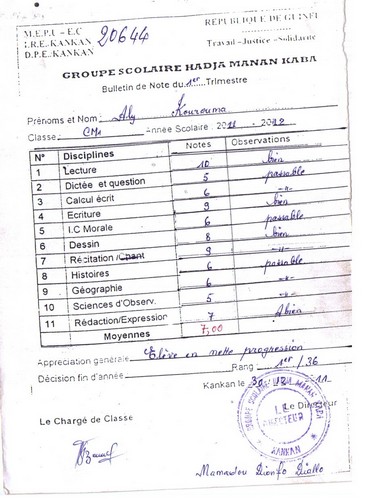 M.E.P.U - E.C
I.R.E.-KANKAN
D.P.E.-KANKAN
20644
REPUBLIQUE DE GUINEE
Travail -Justice -Solidarité
GROUPE SCOLAIRE HADJA MANAN KABA
Bulletin de Note du 1er Trimestre
Prénoms et Nom : Aly Kourouma
Classe : CM1 Année Scolaire 2011 - 2012
N° Disciplines Notes Observations
1 Lecture 10 bien
2 Dictée et question 5 passable
3 Calcul écrit 6 -"-
4 Ecriture 9 bien
5 I.C Morale 6 passable
6 Dessin 8 bien
7 Récitation /Chant 9 -"-
8 Histoires 6 passable
9 Géographie 6 -"-
10 Sciences d'Observ. 5 -"-
11 Rédaction/Expression 7 Abien
Moyennes 7,00
Appréciation générale Elève en nette progression
Décision fin d'année Rang 1er / 36
Kankan le 30 / 12 - 11
Le Chargé de Classe
Le Directeur
GROUPE SCOLAIRE HADJA MANAN KABA
LE
DIRECTEUR
KANKAN
Mamadou Dianfo Diallo